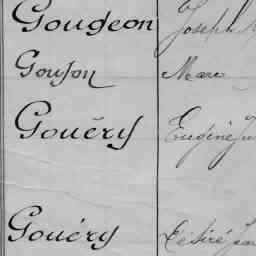 Gougeon Joseph
Goujon Marc
Gouëry Eugène
Gouéry Désiré Jean